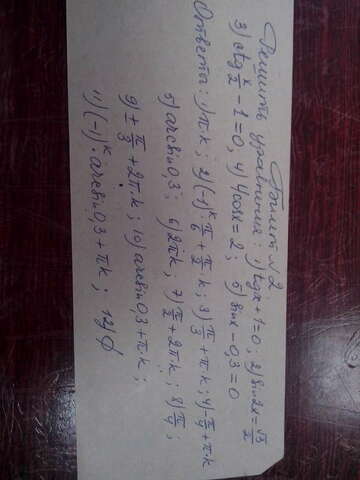 Билет №2.
Решить уравнения: 1) tgx+1=0; 2) sin2x=√3/2
3) ctg x/2 - 1=0, 4) 4cosx=2; 5) sinx-0,3=0
Ответы: 1) π·k; 2) (-1)^k·π/6+π/2·k; 3) π/3+π·k; 4) -π/4+π·k
5) arcsin0,3; 6) 2πk; 7) π/2+2π·k; 8) π/4;
9) ± π/3+2π·k; 10) arcsin0,3+π·k;
11) (-1)^k·arcsin0,3+πk; 12) ф